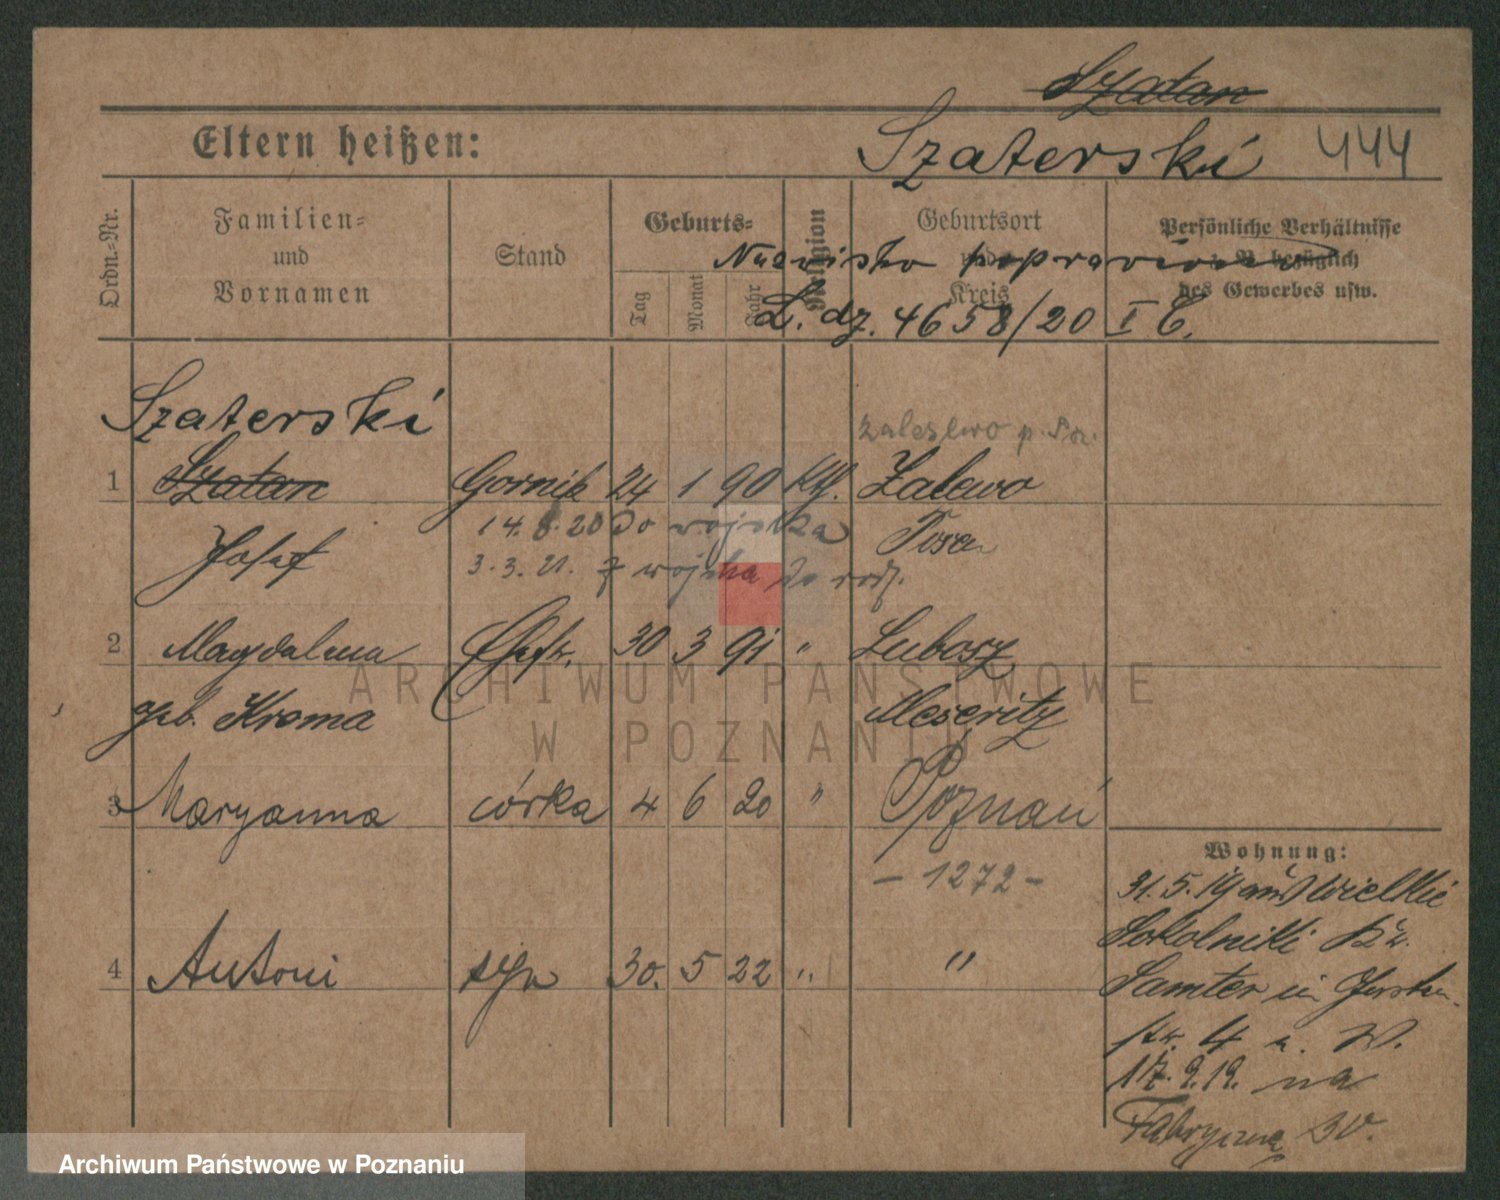 Szatan
Eltern heißen:
Szaterski 444
Ordn.-Nr.
Familien- und Vornamen
Stand
Geburts-
Tag
Monat
Jahr
Religion
Geburtsort und Kreis
Persönliche Verhältnisse z. B. bezüglich des Gewerbes usw.
Nazwisko poprawiono
L. dz. 4658/20 I C.
Szaterski
zalesewo p. Poz.
1 Szatan Gornik 24 1 90 kth. Zalewo
14. 8. 20 do wojska
Josef Posen
3. 3. 21. z wojska do rodz.
2 Magdalena Ehefr. 30 3 91 " Lubosz
geb. Kroma Meseritz
3 Maryanna córka 4 6 20 " Poznań
- 1272 -
4 Antoni syn 30. 5 22 " "
Wohnung:
31. 5. 19 aus Wielkie
Sokolniki Kr.
Samter in Gersten-
str. 4 a. W.
17. 9. 19. na
Fabryczna 30.
ARCHIWUM PAŃSTWOWE
W POZNANIU
Archiwum Państwowe w Poznaniu